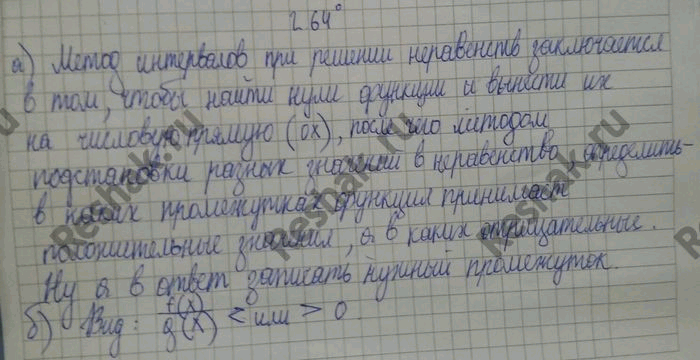 2.64°
а) Метод интервалов при решении неравенств заключается
в том, чтобы найти нули функции и вынести их
на числовую прямую (ox), после чего методом
подстановки разных значений в неравенство, определить-
в каких промежутках функция принимает
положительные значения, а в каких отрицательные.
Ну а в ответ записать нужный промежуток.
б) Вид: f(x)/g(x) < или > 0
Reshak.ru
Reshak.ru
Reshak.ru